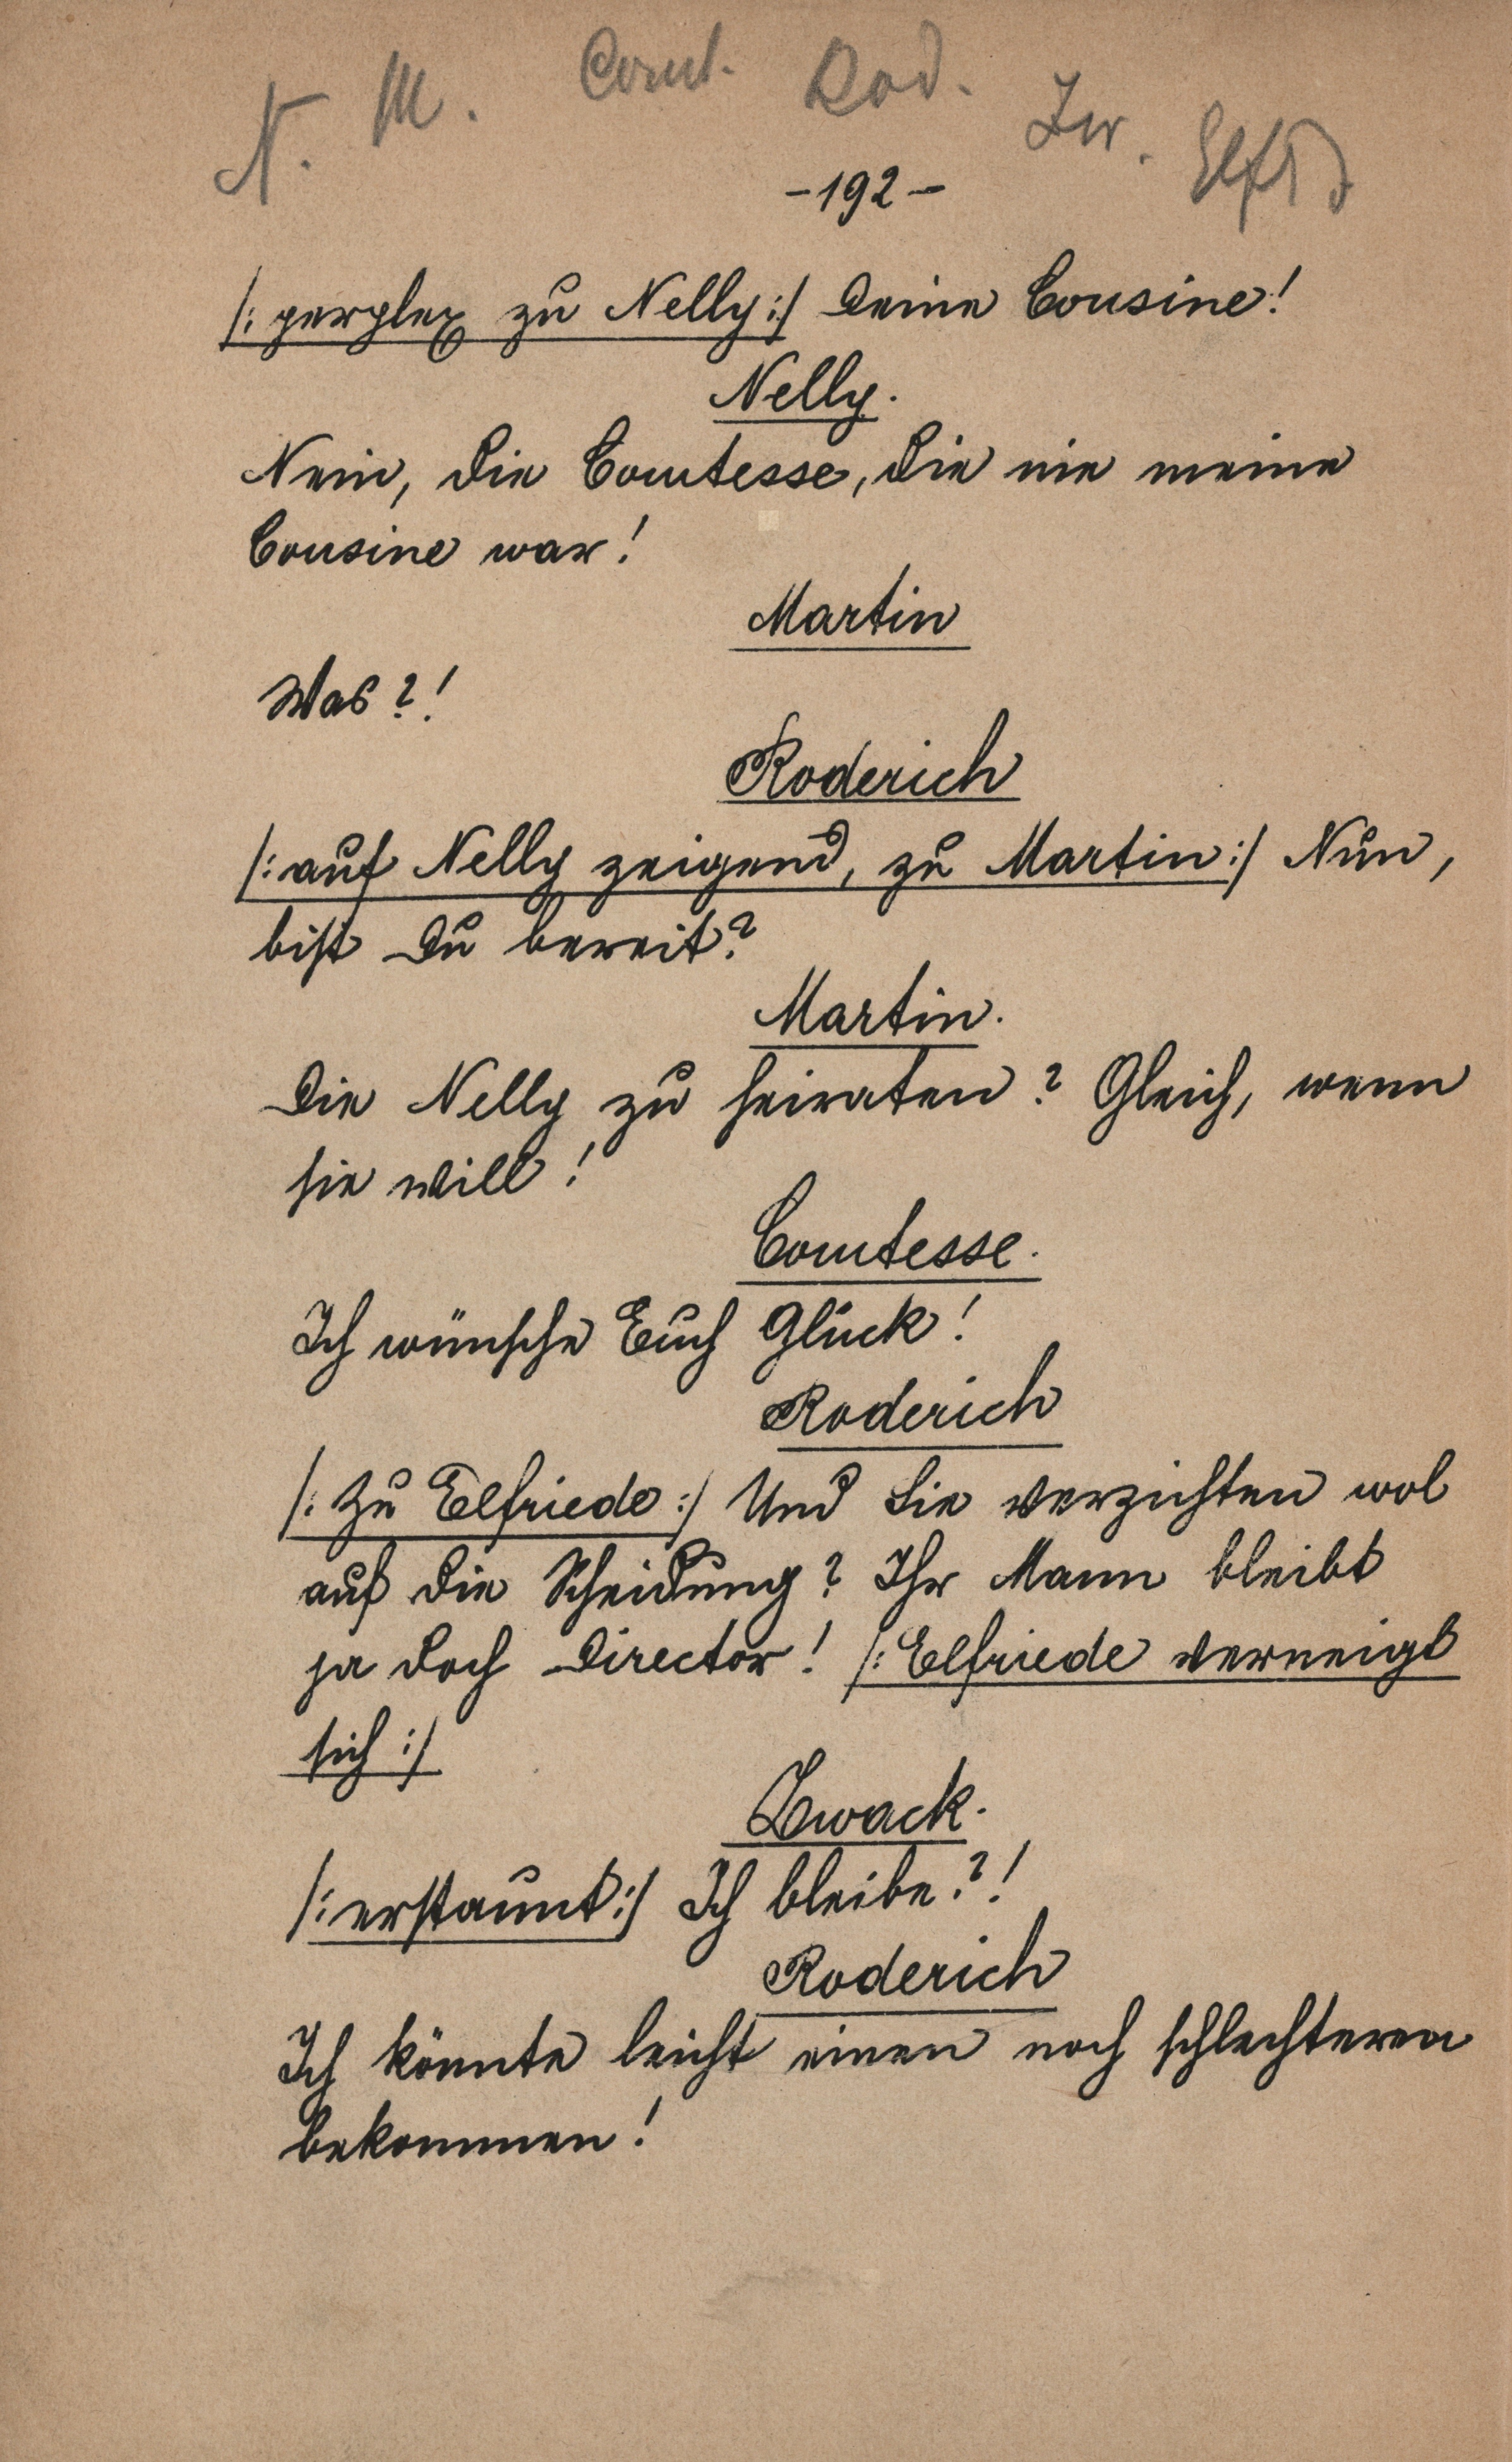 N. M. Comt. Rod. Zw. Elfr
-192-
/: perplex zu Nelly :/ Deine Cousine!
Nelly.
Nein, die Comtesse, die nie meine
Cousine war!
Martin
Was?!
Roderich
/: auf Nelly zeigend, zu Martin :/ Nun,
bist Du bereit?
Martin.
Die Nelly zu heiraten? Gleich, wenn
sie will!
Comtesse.
Ich wünsche Euch Glück!
Roderich
/: Zu Elfriede :/ Und Sie verzichten wol
auf die Scheidung? Ihr Mann bleibt
ja doch Director! /: Elfriede verneigt
sich :/
Zwack.
/: erstaunt :/ Ich bleibe?!
Roderich
Ich könnte leicht einen noch schlechteren
bekommen!